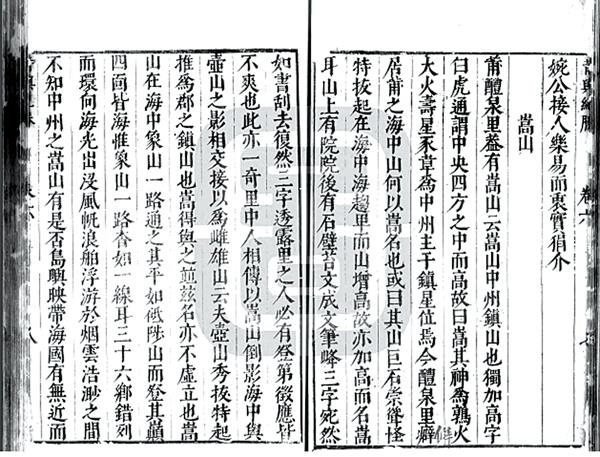 卷六
婉公接人樂易而衷實狷介
嵩山
莆醴泉里有嵩山云嵩山中州鎮山也獨加高字
白虎通謂中央四方之中而高故曰嵩其神為鶉火
大火壽星豕韋為中州主于鎮星位焉今醴泉里僻
居莆之海中山何以嵩名也或曰其山巨石崇聳怪
特拔起在海中海趨卑而山增高故亦加高而名嵩
耳山上有院院後有石壁苔文成文筆略三字宛然
如書刮去復然三字透露里之人必有登第徵應皆
不爽也此亦一奇里中人相傳以嵩山倒影海中與
壺山之影相交接以為雌雄山云夫壺山秀拔特起
推為郡之鎮山也嵩得與之並茲名亦不虛立也嵩
山在海中象山一路通之其平如砥陟山而登其巔
四面皆海惟象山一路杳如一線耳三十六鄉錯列
而環向海光出沒風帆浪舶浮游於烟雲浩渺之間
不知中州之嵩山有是否島嶼映帶海國有無近而
八